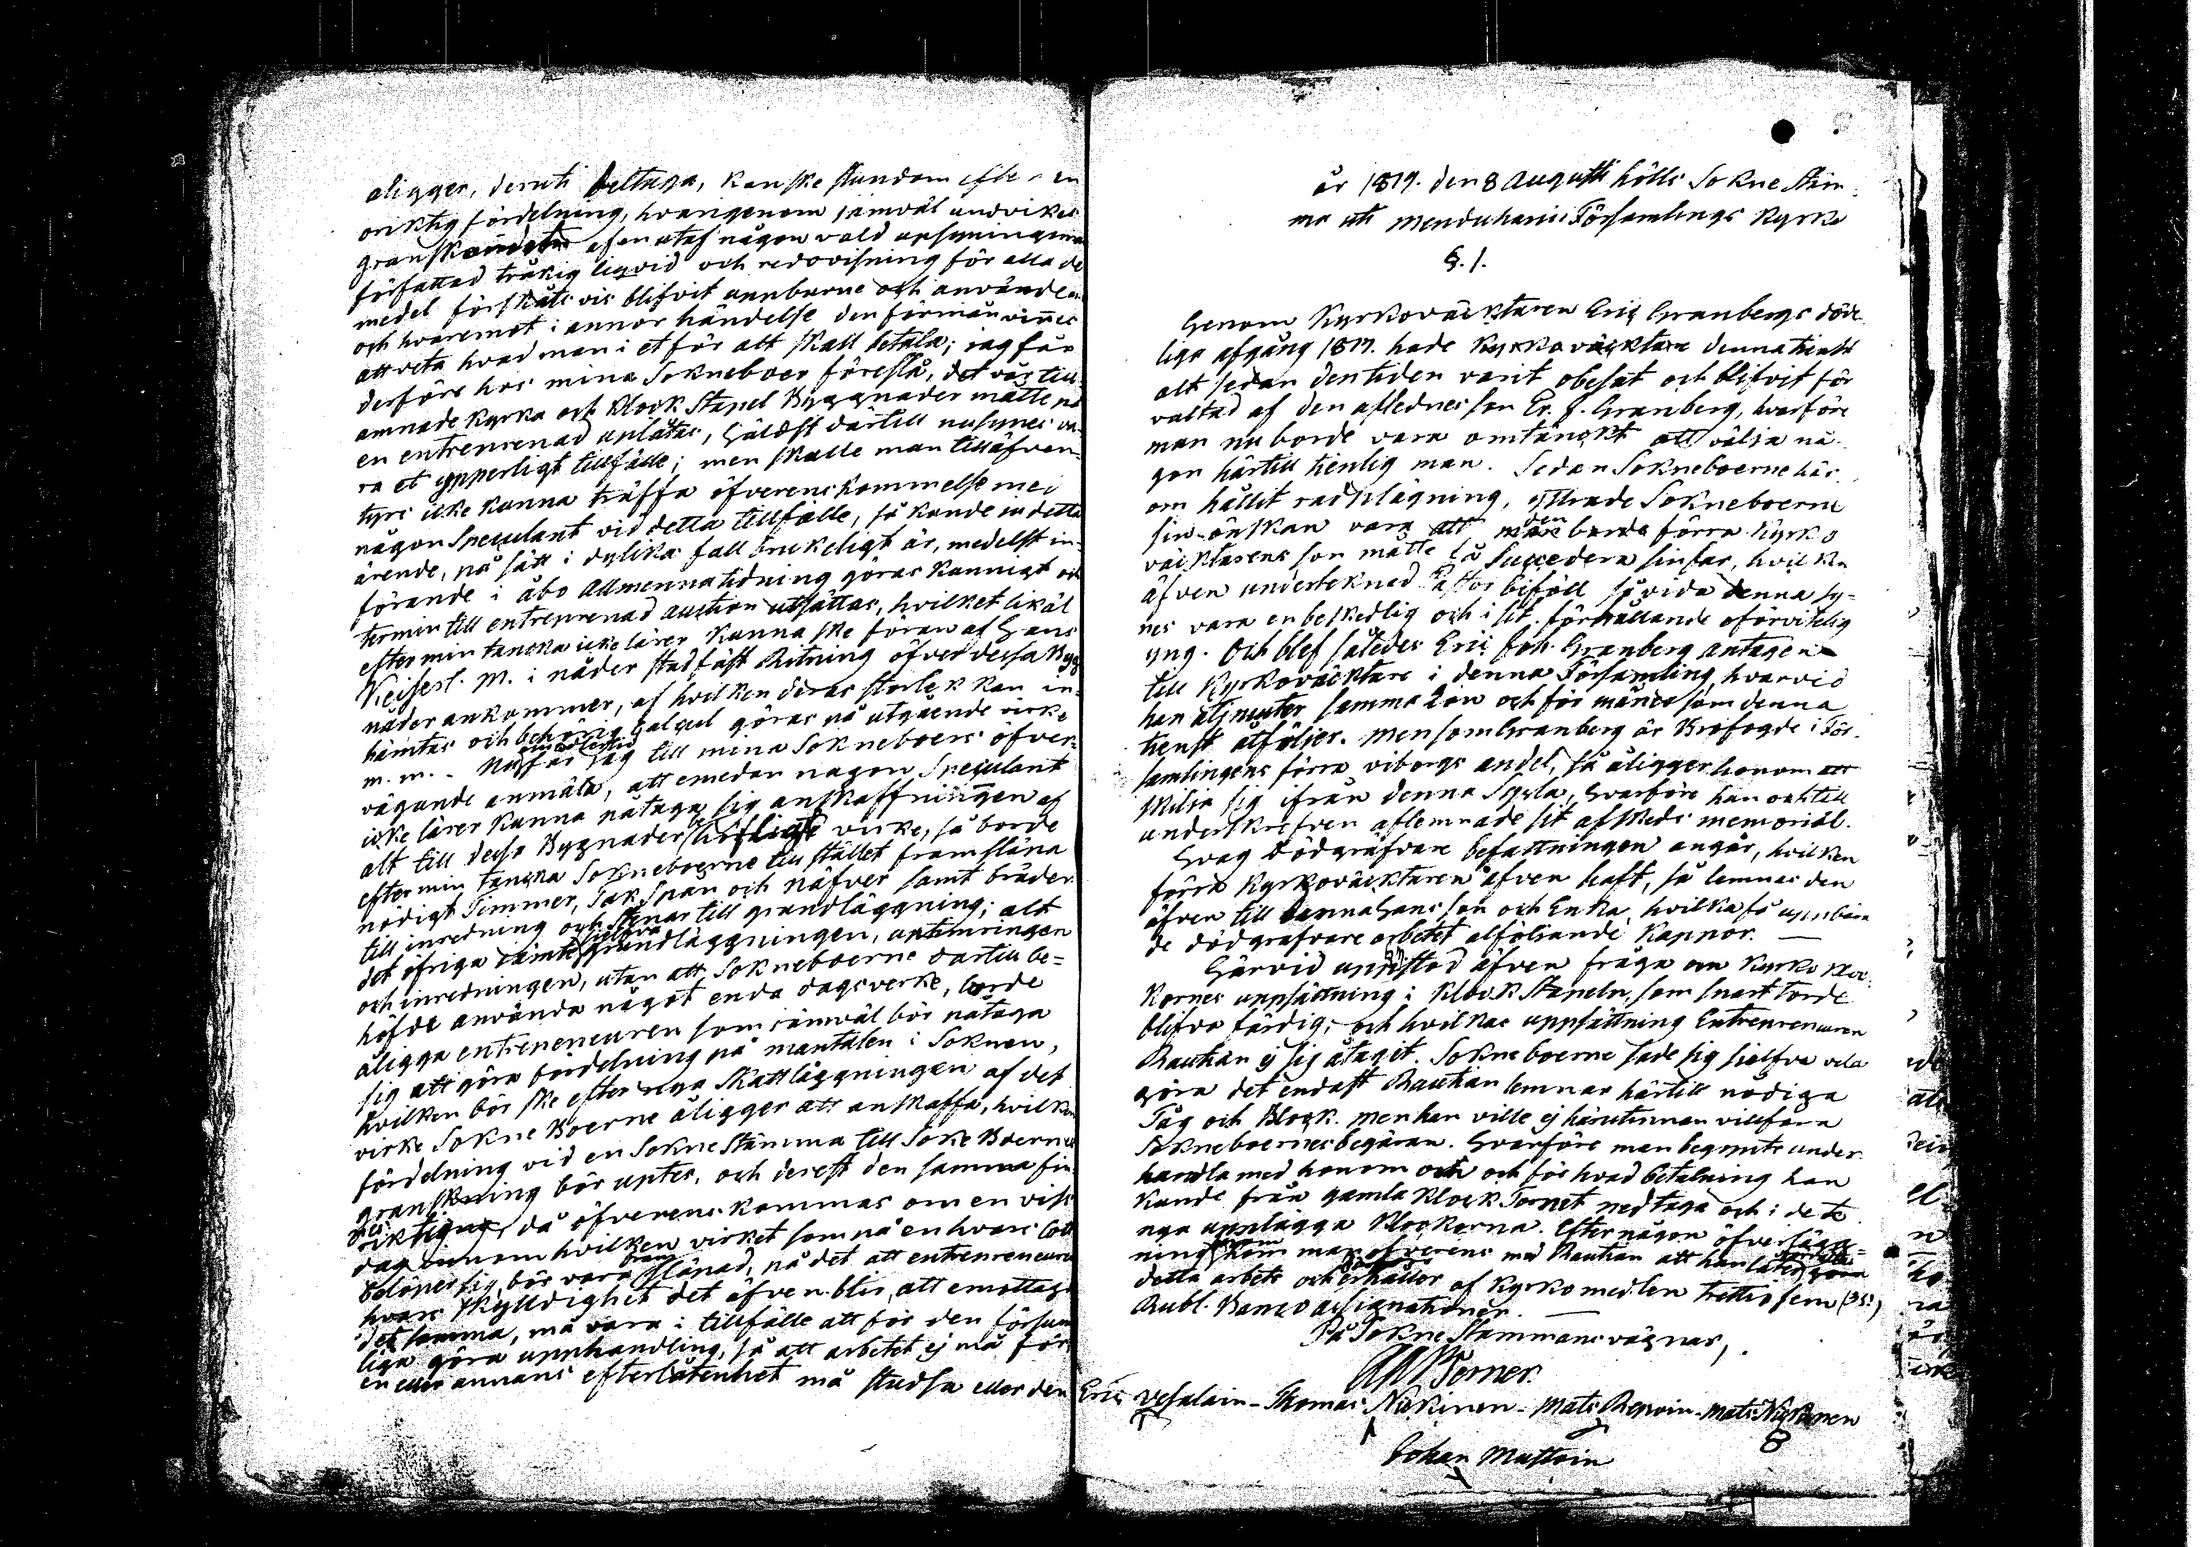 åligger, deruti deltaga, kanske stundom efter en
oriktig fördelning, hvarigenom jämväl undvikes
granskandet af en utaf någon vald upsyningsman
författad tråkig liqvid och redovisning för alla de
medel förskåtsvis blifvit uppburne och använde
och hvaremot i annor händelse den förmån vinnes
att veta hvad man i et för alt skall betala; jag får
derföre hos mina Sokneboer föreslå, det vår till-
ämnade Kyrka och Klock Stapel Byggnader måtte på
en entreprenad uplåtas, hälst därtill nu synes va-
ra et ypperligt tillfälle; men skulle man tilläfven-
tyrs icke kunna träffa öfverenskommelse med
någon Speculant vid detta tillfälle, så kunde ju detta
ärende, på sätt i dylika fall brukeligt är, medelst in-
förande i Åbo Allmenna tidning göras kunnigt och
termin till entreprenad auction utsättas, hvilket likäl
efter min tancka icke lärer kunna ske förän af Hans
Keiserl. M. i nåder stadfäst Ritning öfver dessa Bygg
nåder ankommer, af hvilken deras storlek kan in-
hämtas och behörig Calcul göras på utgående virke
m. m. Nu får jag till mina Sokneboers öfver-
vägande anmäla, att emedan någon Speculant
icke lärer kunna påtaga sig anskaffningen af
alt till dessa Bygnader virke, så borde
efter min tancka Sokneboerne till stället framsläpa
nödigt Timmer, Tak Spån och Näfver samt bräder
till inredning och Stenar till grundläggning; alt
det öfriga jämte sjelfva grundläggningen, uptimringen
och inredningen, utan att Sokneboerne dartill be-
höfde använda något enda dagsverke, borde
åligga entrepeneuren som jämväl bör påtaga
sig att göra fördelning på mantalen i Soknen,
hvilken bör ske efter nya Skattläggningen af det
virke Sokne Boerne åligger att anskaffa, hvilken
fördelning vid en Sokne Stämma till Sokne Boernes
granskning bör uptes, och derest den samma fin-
nes riktig, då öfverenskommas om en viss
dag innom hvilken virket som på en hvars lott
belöper sig bör vara framsläpad, på det att entrepreneuren
hvars skylldighet det äfven blir, att emottaga
det samma, må vara i tillfälle att för den försum
liga göra upphandling, så att arbetet ej må för
en eller annans efterlåtenhet må studsa eller den
år 1819. den 8 Augusti hölls Sokne Stäm-
ma uti Menduharju Församlings Kyrka
§. 1.
Genom Kyrkoväcktaren Eric Granbergs döde
liga afgång 1817. hade Kyrkoväcktare denna tienst
alt sedan den tiden varit obesat och blifvit för
valtad af den aflednes son Er. J. Granberg, hvarföre
man nu borde vara omtänckt att välja nå-
gon härtill tienlig man. Sedan Sokneboerne här
om hållit rådplägning, yttrade Sokneboerne
sin önskan vara att den förra Kyrko
väcktarens son måtte få Succedera sin far, hvilken
äfven underteknad Pastor biföll så vida denna sy-
nes vara en beskedlig och i sit förhållande oförvitelig
yng. Och blef således Eric Joh. Granberg antagen
till Kyrkoväcktare i denna Församling, hvarvid
han åtjnuter samma Lön och förmåner som denna
tienst åtföljer. Men som Granberg är Brofogde i För-
samlingens förra Viborgs andel, så åligger honom att
skilja sig ifrån denna Sysla, hvarföre han ock till
underskrefven aflemnade sit afskeds memorial.
Hvag Dödgräfvare befattningen angår, hvilken
förra Kyrkoväcktaren äfven haft, så lemnas den
äfven till denna Hans son och Enka, hvilka få uppbära
de dödgräfvare arbetet alföljande Kappor.
Härvid uppstod äfven fråga om Kyrko Kloc-
kornes uppsättning i Klock Stapeln, som snart torde
blifva färdig, och hvilkas uppsättning Entrepreneuren
Rautian ej sig åtagit. Sokneboerne sade sig sjelfva vela
göra det endast Rautian lemnar härtill nödiga
Tåg och Block. men han ville ej härutinnan villfara
Sokneboernes begäran. Hvarföre man begynte under-
handla med honom och för hvad betalning han
kunde från gamla Klock Tornet nedtaga och i dete
nya upplägga Klockorna. Efter någon öfverlägg-
ning kom man öfverens med Rautian att han låter
detta arbete och erhåller af Kyrkomedlen trettiofem (35)
Rubl. Banco Assignationer.
På Sokne Stämmans vägnar,
Eric Vesalain - Thomas Nükinen - Mats Repoin - Mats Nükinen
Johan Mustoin